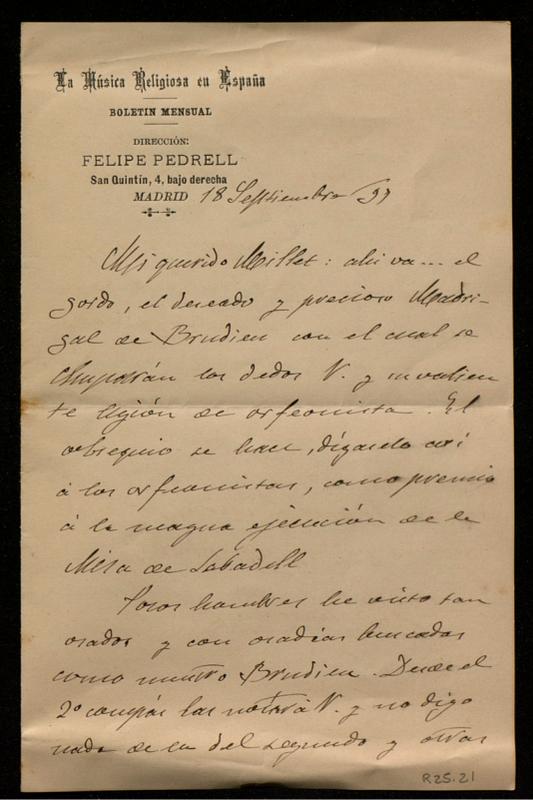 La Música Religiosa en España
BOLETÍN MENSUAL
DIRECCIÓN:
FELIPE PEDRELL
San Quintín, 4, bajo derecha
MADRID 18 Septiembre 97
Mi querido Millet: ahi va... el
gordo, el deseado y precioso Madri-
gal de Brudieu con el cual se
chuparán los dedos V. y su valien
te legión de orfeonista. El
obsequio se hace, dígaselo así
á los orfeonistas, como premio
á la magna ejecución de la
Misa de Sabadell
Pocos hombres he visto tan
osados y con osadías buscadas
como nuestro Brudieu. Desde el
2º compás las notará V. y no digo
nada de la del segundo y otras
R25.21